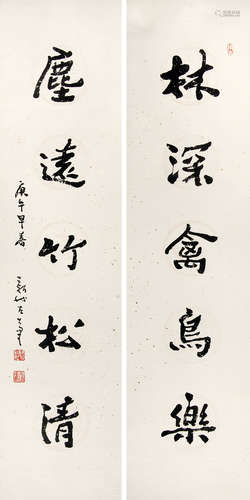 林深禽鳥樂
塵遠竹松清
庚午早春